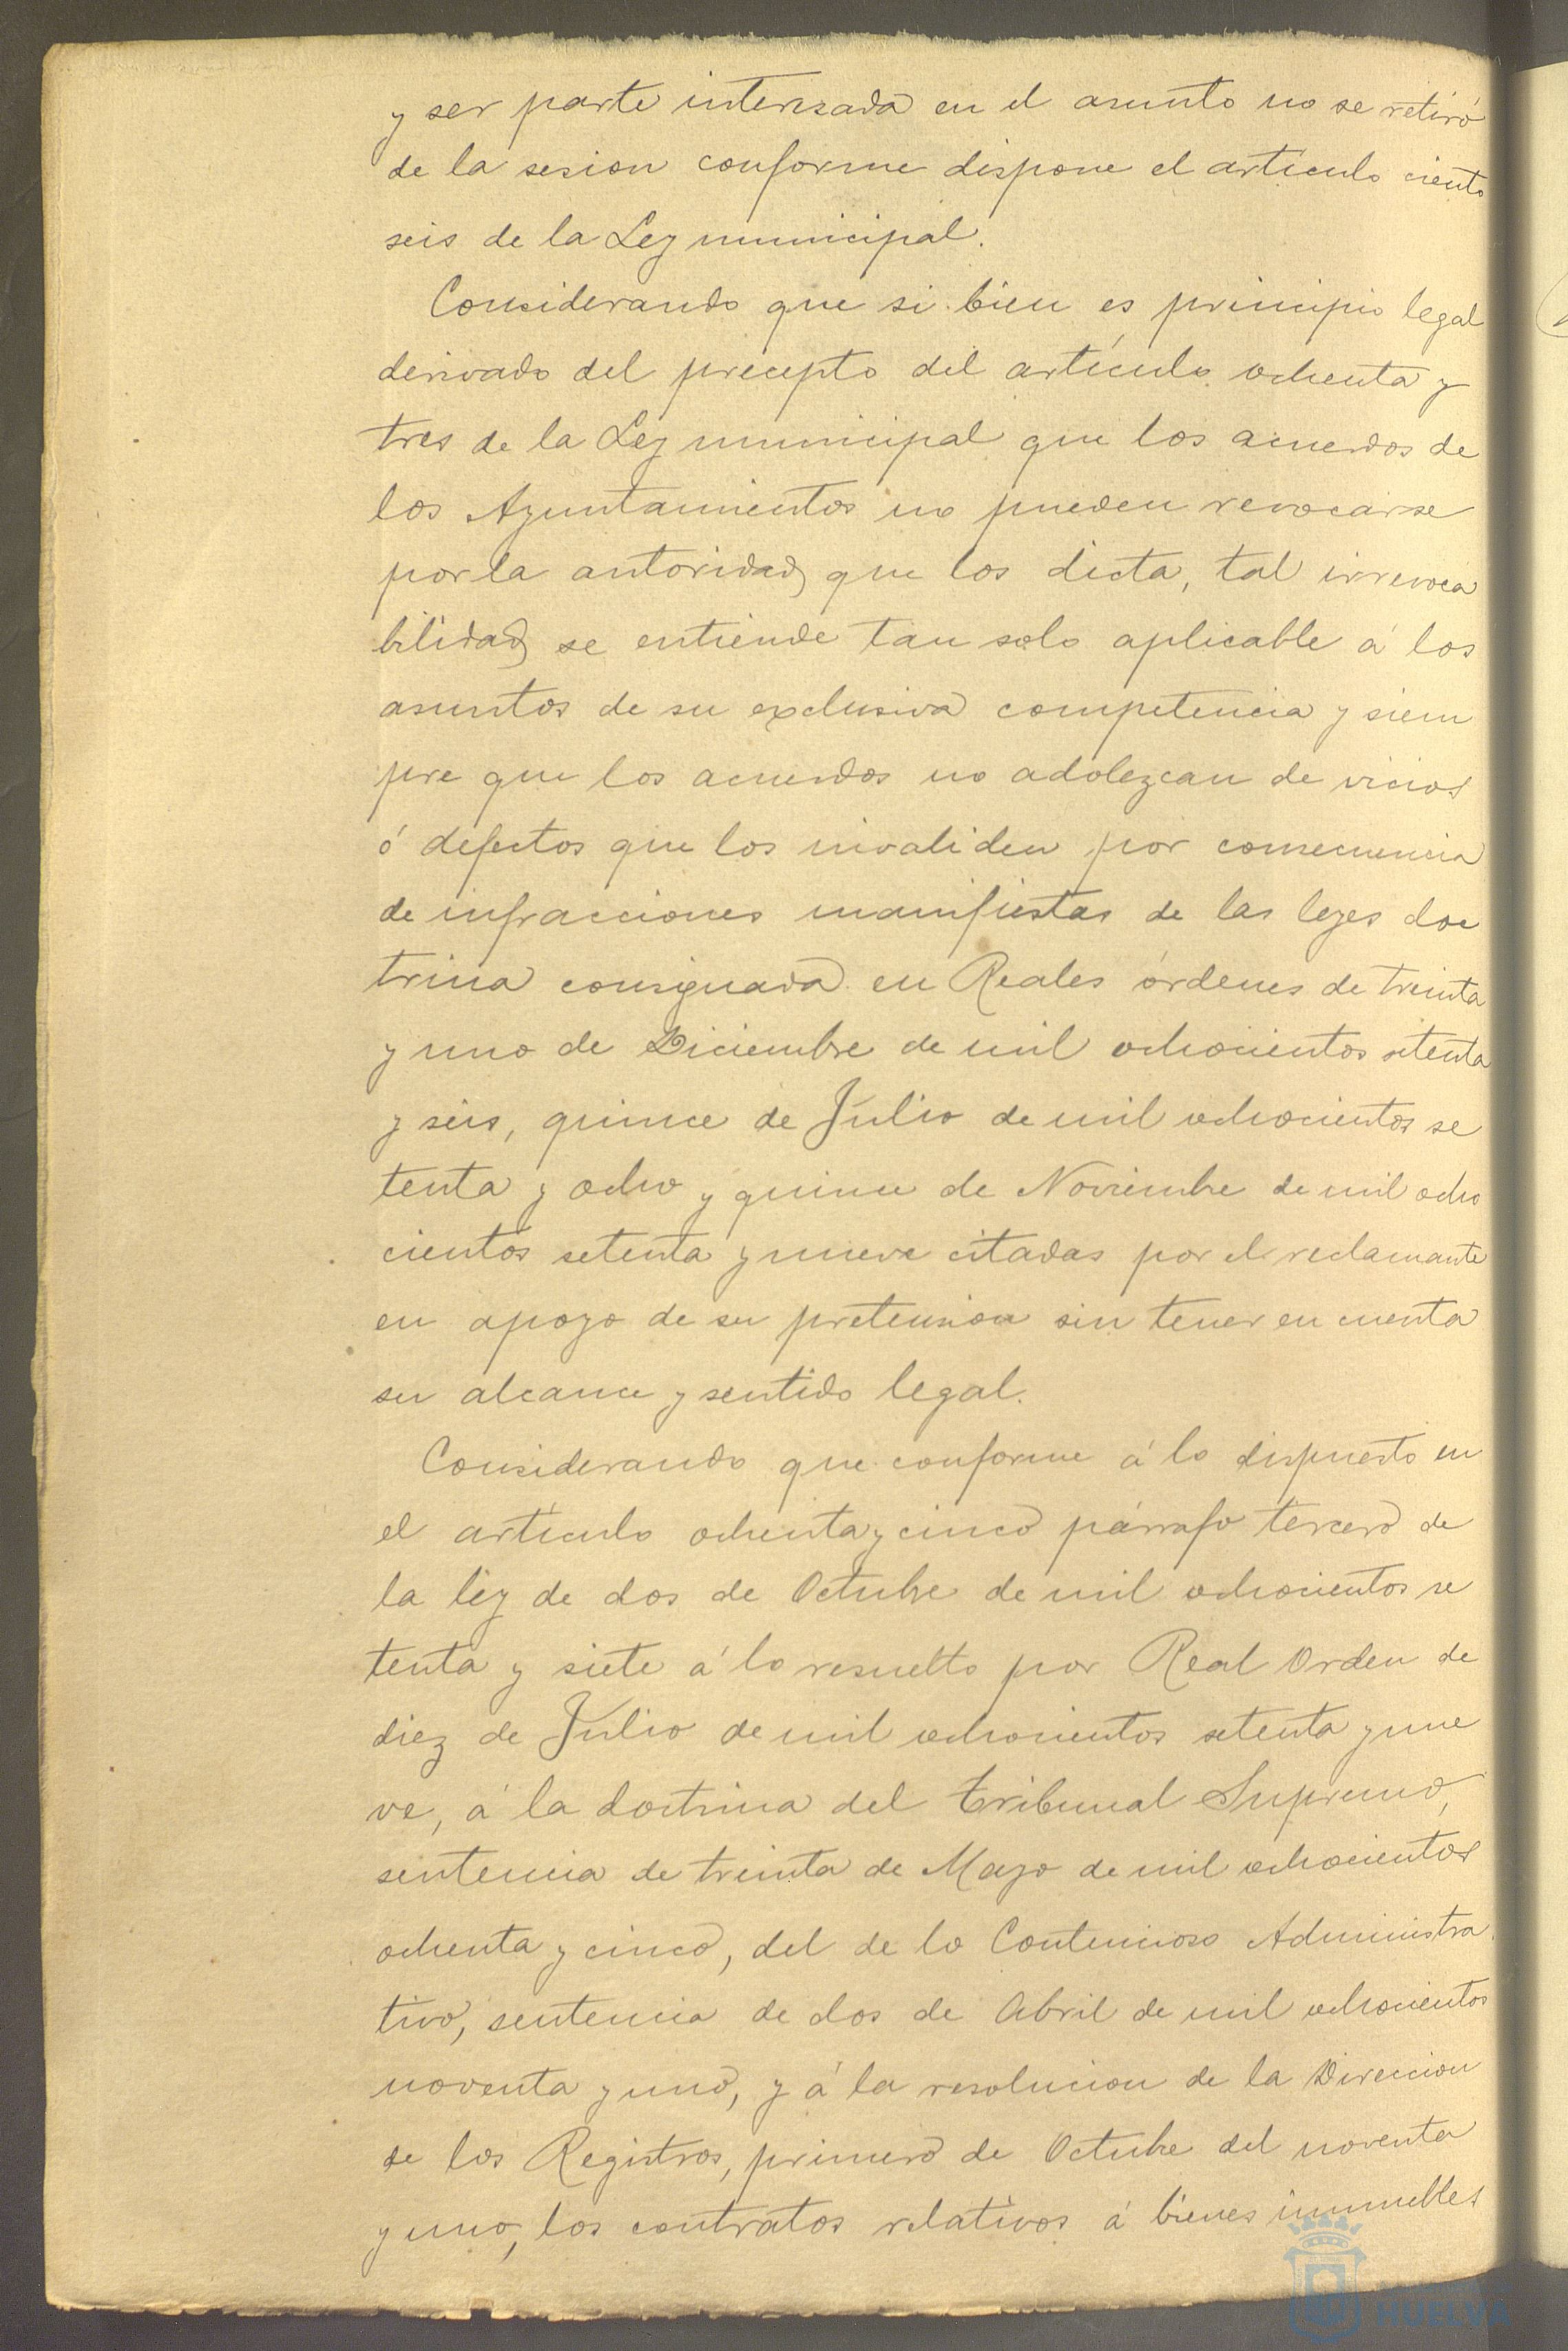 y ser parte interesada en el asunto no se retiró
de la sesion conforme dispone el artículo ciento
seis de la Ley municipal.
Considerando que si bien es principio legal
derivado del precepto del artículo ochenta y
tres de la Ley municipal que los acuerdos de
los Ayuntamientos no pueden revocarse
por la autoridad que los dicta, tal irrevoca
bilidad se entiende tan solo aplicable á los
asuntos de su exclusiva competencia y siem
pre que los acuerdos no adolezcan de vicios
ó defectos que los invaliden por consecuencia
de infracciones manifiestas de las leyes doc
trina consignada en Reales órdenes de treinta
y uno de Diciembre de mil ochocientos setenta
y seis, quince de Julio de mil ochocientos se
tenta y ocho y quince de Noviembre de mil ocho
cientos setenta y nueve citadas por el reclamante
en apoyo de su pretension sin tener en cuenta
su alcance y sentido legal.
Considerando que conforme á lo dispuesto en
el artículo ochenta y cinco párrafo tercero de
la ley de dos de Octubre de mil ochocientos se
tenta y siete á lo resuelto por Real Orden de
diez de Julio de mil ochocientos setenta y nue
ve, á la doctrina del Tribunal Supremo,
sentencia de treinta de Mayo de mil ochocientos
ochenta y cinco, del de lo Contencioso Administra
tivo, sentencia de dos de Abril de mil ochocientos
noventa y uno, y á la resolucion de la Direccion
de los Registros, primero de Octubre del noventa
y uno, los contratos relativos á bienes inmuebles
HUELVA